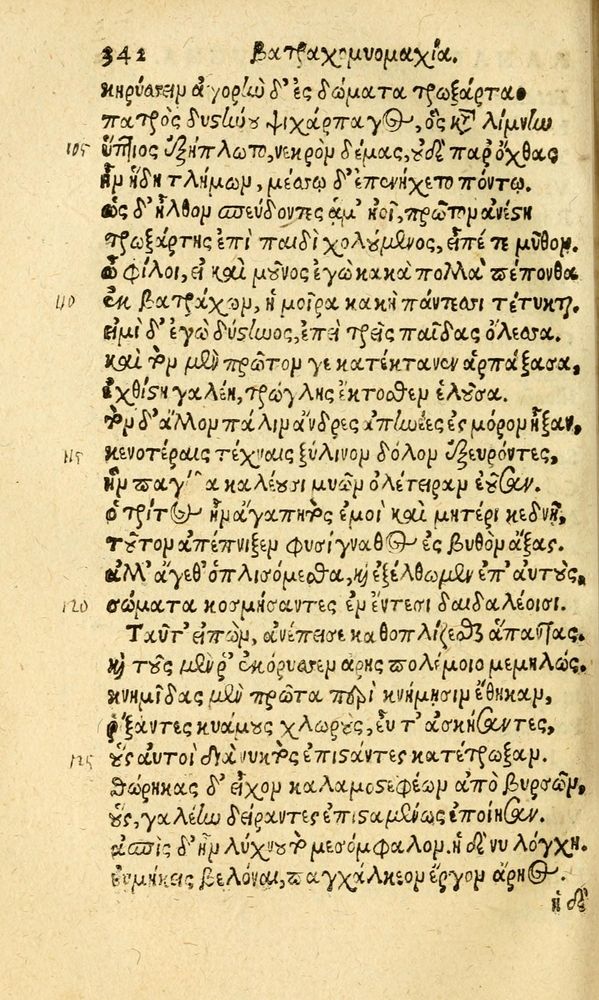 342 Βατραχομυομαχία.
κηρύσσειν ἀγορὴν δ' ἐς δώματα τρωξάρτα.
πατρὸς δυστήνου ψιχάρπαγος, ὃς κατὰ λίμνην
105 ὕπτιος ἐξήπλωτο, νεκρὸν δέμας, οὐδὲ παρ' ὄχθας
ἦν ἤδη τλήμων, μέσσῳ δ' ἐπενήχετο πόντῳ.
ὡς δ' ἦλθον σπεύδοντες ἅμ' ἠοῖ, πρῶτον ἀνέστη
τρωξάρτης ἐπὶ παιδὶ χολούμενος, εἶπέ τε μῦθον.
ὦ φίλοι, εἰ καὶ μοῦνος ἐγὼ κακὰ πολλὰ πέπονθα
110 ἐκ βατράχων, ἡ μοῖρα κακὴ πάντεσσι τέτυκται.
εἰμὶ δ' ἐγὼ δύστηνος, ἐπεὶ τρεῖς παῖδας ὄλεσσα.
καὶ τὸν μὲν πρῶτόν γε κατέκτανεν ἁρπάξασα,
ἐχθίστη γαλέη, τρώγλης ἔκτοσθεν ἑλοῦσα.
τὸν δ' ἄλλον πάλιν ἄνδρες ἀπηνέες ἐς μόρον ἦξαν,
115 κενοτέραις τέχναις ξύλινον δόλον ἐξευρόντες,
ἣν παγίδα καλέουσι μυῶν ὀλέτειραν ἐοῦσαν.
ὁ τρίτος ἦν ἀγαπητὸς ἐμοὶ καὶ μητέρι κεδνῇ,
τοῦτον ἀπέπνιξεν φυσίγναθος ἐς βυθὸν ἄξας.
ἀλλ' ἄγεθ' ὁπλισόμεσθα, καὶ ἐξέλθωμεν ἐπ' αὐτοὺς,
120 σώματα κοσμήσαντες ἐν ἔντεσι δαιδαλέοισι.
Ταῦτ' εἰπὼν, ἀνέπεισε καθοπλίζεσθαι ἅπαντας.
καὶ τοὺς μέν ῥ' ἐκόρυσσεν ἄρης πολέμοιο μεμηλώς.
κνημῖδας μὲν πρῶτα περὶ κνήμῃσιν ἔθηκαν,
ῥήξαντες κυάμους χλωροὺς, εὖ τ' ἀσκήσαντες,
125 οὓς αὐτοὶ διὰ νυκτὸς ἐπιστάντες κατέτρωξαν.
θώρηκας δ' εἶχον καλαμοστεφέων ἀπὸ βυρσῶν,
οὓς, γαλέην δείραντες ἐπισταμένως ἐποίησαν.
ἀσπὶς δ' ἦν λύχνου τὸ μεσόμφαλον. ἡ δέ νυ λόγχη.
εὐμήκεις βελόναι, παγχάλκεον ἔργον ἄρηος.
ἡ δὲ